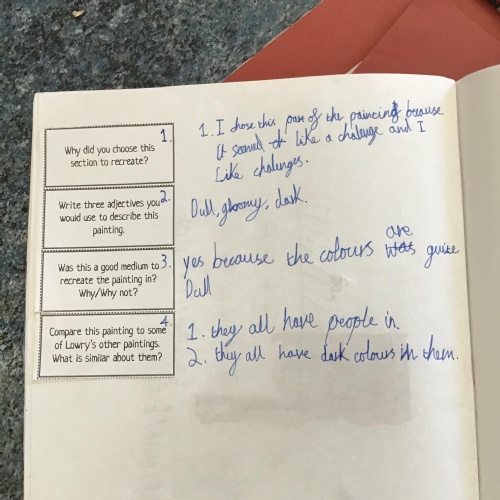 1.
Why did you choose this
section to recreate?
1. I chose this part of the painting because
it seemed like a chalenge and I
Like chalenges.
2.
Write three adjectives you
would use to describe this
painting.
Dull, gloomy, dark.
3.
Was this a good medium to
recreate the painting in?
Why/Why not?
are
yes because the colours was quite
Dull
4.
Compare this painting to some
of Lowry's other paintings.
What is similar about them?
1. they all have people in.
2. they all have dark colours in them.